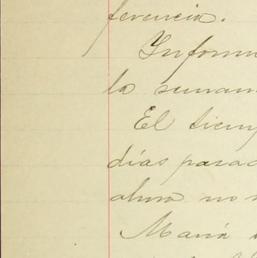 ferencia.
Inform
la seman
El tiemp
días pasad
alma no
María